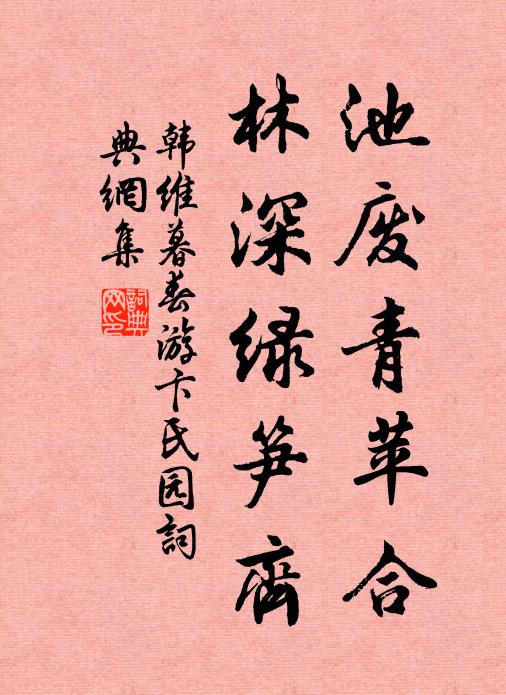 池废青苹合
林深绿笋齊
韩维暮春游卞氏园詞
典網集
詞典
网印